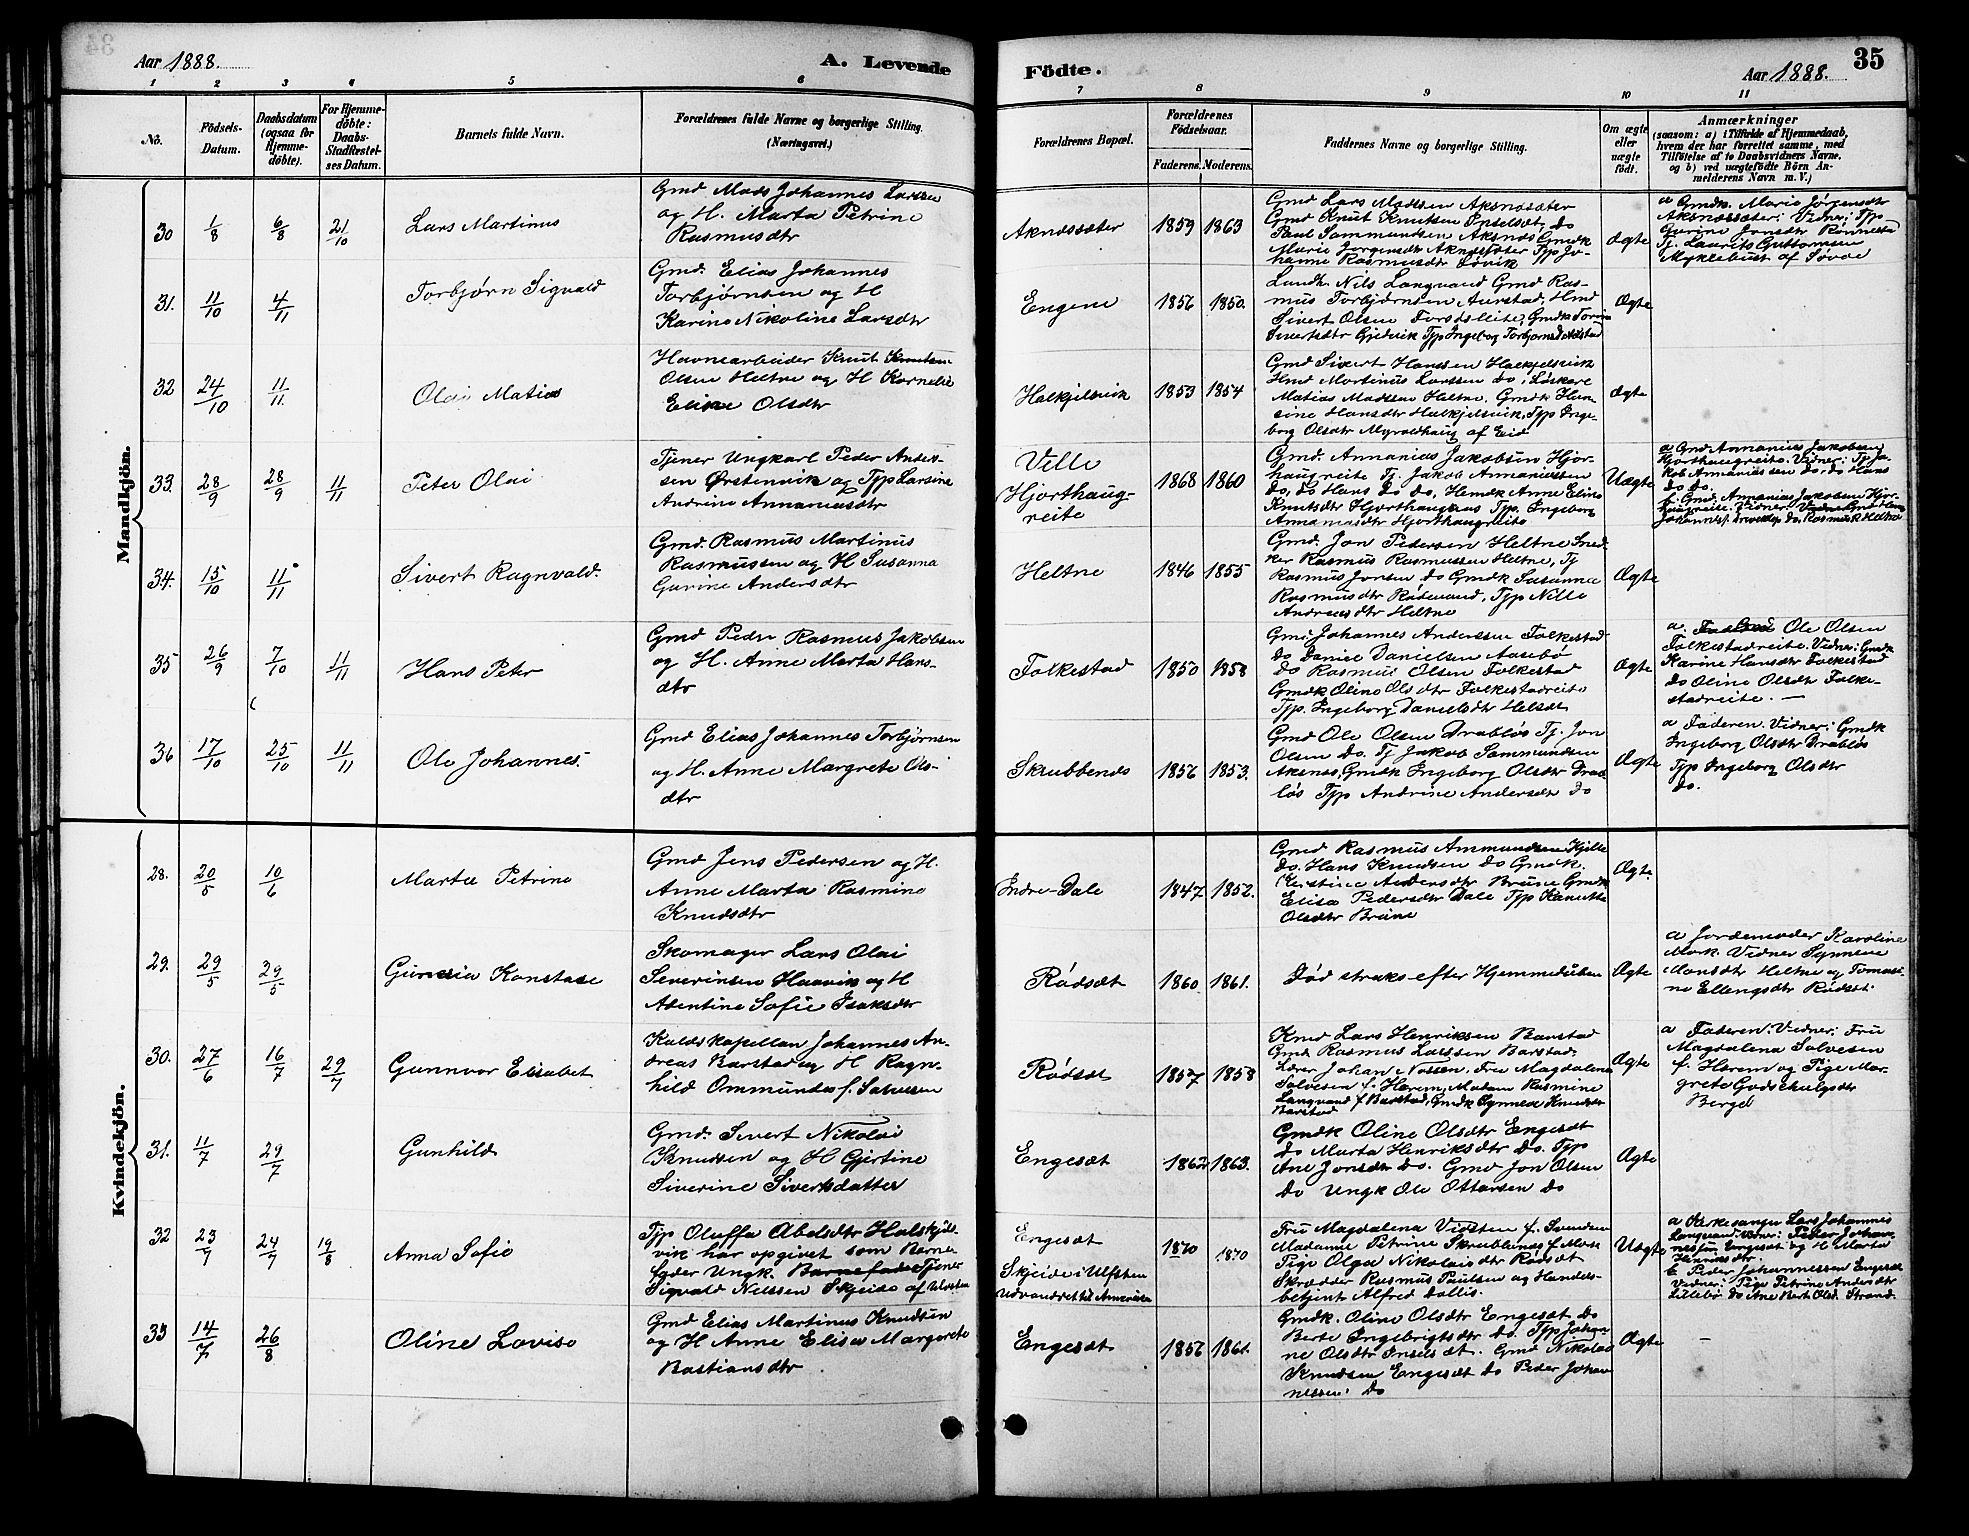 Aar 1888.
A. Levende
Födte.
Aar 1888.
35
1 2 3 4 5 6 7 8 9 10 11
No.
Födsels-Datum.
Daabsdatum (ogsaa for Hjemme-döbte).
For Hjemme-döbte: Daabs-Stadfæstel-ses Datum.
Barnets fulde Navn.
Forældrenes fulde Navne og borgerlige Stilling.
(Næringsvei.)
Forældrenes Bopæl.
Forældrenes Födselsaar.
Faderens. Moderens.
Faddernes Navne og borgerlige Stilling.
Om ægte eller uægte födt.
Anmærkninger
(saasom: a) i Tilfælde af Hjemmedaab, hvem der har forrettet samme, med Tilföielse af to Daabsvidners Navne, og b) ved uægtefödte Börn An-melderens Navn m. V.)
Mandkjön.
30 1/8 6/8 21/10 Lars Martinus
Gmd Mads Johannes Larsen
og H. Marta Petrine
Rasmusdtr
Aknæssæter 1859 1863
Gmd Lars Madssen Aksnæsæter
Gmd Knut Knutsen Indselsæt, do
Paul Sammundsen Aksnæs Gmdk
Marie Jorgensdtr Aknæssæter Tjp Jo-
hanne Rasmusdtr Løvik
Ægte
a Gmdk. Marie Jørgensdtr
Aksnæssæter. Vidner: Tjp
Gurine Jonsdtr Rønnesta
Tj. Laurits Guttormsen
Myklebust af Søvde
31. 11/10 4/11 Torbjørn Sigvald
Gmd. Elias Johannes
Torbjørnsen og H
Karine Nikoline Larsdtr
Engene 1856 1850.
Landh. Nils Langvand Gmd Ras-
mus Torbjørnsen Aurstad, Hmd
Sivert Olsen Forsdsleite, Gmdk Torine
Sivertsdtr Gjedvik Tjp Ingeborg Torbjørnsd Aurstad
Ægte
32 24/10 11/11. Olai Matias
Havnearbeider Knut Knutsen
Olsen Heltne og H Kornelie
Elisne Olsdtr
Halkjelsvik 1853 1854
Gmd Sivert Hanssen Halkjelsvik
Hmd Martinus Larssen do, Løskarl
Matias Madssen Heltne. Gmdk Han-
sine Hansdtr Halkjelsvik, Tjp Inge-
borg Olsdtr Myroldhaug af Eid
Ægte
33. 28/9 28/9 11/11 Peter Olai
Tjener Ungkarl Peder Anders-
sen Ørstenvik og Tjp Larsine
Andrine Annaniasdtr
Velle
Hjorthaug-
reite
1868 1860
Gmd. Annanias Jakobsen Hjor-
haugreite Tj. Jakob Annaniassen
do, do Hans do do, Hemdk Anne Eline
Knutsdtr Hjorthaugnes Tjp. Ingeborg
Annaniasdtr Hjorthaugreite
Uægte
a Gmd. Annanias Jakobsen
Hjorthaugreite. Vidner: Tj Ja-
kob Annaniassen do, do Hans
do do.
b. Gmd. Annanias Jakobsen Hjor-
haugreite. Vidner
34. 15/10 11/11 Sivert Ragnvald.
Gmd. Rasmus Martinus
Rasmussen og H Susanna
Gurine Andersdtr
Heltne 1846 1855
Gmd. Jon Pedersen Heltne Sned-
ker Rasmus Rasmussen Heltne, Tj
Rasmus Jonsen do Gmdk Susanne
Rasmusdtr Rødevand, Tjp Nille
Andreasdtr Heltne
Ægte
35 26/9 7/10 11/11 Hans Peter
Gmd Peder Rasmus Jakobsen
og H. Anne Marta Hans-
dtr
Folkestad 1850 1858
Gmd. Johannes Anderssen Folkestad
Do Daniel Danielsen Aasebø
Do Rasmus Olsen Folkestad
Gmdk Oline Olsdtr Folkestadreite
Tjp. Ingeborg Danielsdtr Helset
Ægte
a. Gmd Ole Olsen
Folkestadreite. Vidner: Gmdk
Karine Hansdtr Folkestad
do Oline Olsdtr Folke-
stadreite. —
36 17/10 25/10 11/11 Ole Johannes.
Gmd Elias Johannes Torbjørnsen
og H. Anne Margrete Ols-
dtr
Skrubbenes 1856 1853.
Gmd Ole Olsen Drabløs Tj. Jon
Olsen do. Tj Jakob Sammundsen
Aksnes, Gmdk Ingeborg Olsdtr Drab-
løs Tjp Andrine Andersdtr do
Ægte
a Faderen. Vidner: Gmdk
Ingeborg Olsdtr Drabløs
Tjp Ingeborg Olsdtr
do.
Kvindekjön.
28. 20/5 10/6 Marta Petrine
Gmd Jens Pedersen og H.
Anne Marta Rasmine
Knudsdtr
Indre-Dale 1847 1852.
Gmd Rasmus Ammundsen Hjelle
Do. Hans Knudsen do Gmdk.
Kirstine Andersdtr Brune Gmdk
Elisa Pedersdtr Dale Tjp Kanutte
Olsdtr Brune
Ægte.
29. 29/5 29/5 Gunesia Konstase
Skomager Lars Olai
Severinsen Haavik og H
Adentine Sofie Isaksdtr
Rødsæt 1860 1861.
Død straks efter Hjemmedaaben
Ægte
a Jordemoder Karoline
Mork. Vidner Synneve
Monsdtr Heltne og Tomasi-
ne Ellengsdtr Rødset.
30. 27/6 16/7 29/7 Gunnvor Elisabet
Kaldskapellan Johannes An-
dreas Barstad og H Ragn-
hild Ommunda f. Salvesen
Rødsæt 1857 1858
Kmd Lars Henriksen Barstad
Gmd. Rasmus Larssen Barstad.
Lærer Johan Nossen. Fru Magdalena
Salvesen f. Harem, Madam Rasmine
Langvand f Barstad, Gmdk Synneva Knudsdtr
Barstad
Ægte
a Faderen. Vidner: Fru
Magdalena Salvesen
f. Harem og Pige Mar-
grete Godskulgsdtr
Berge
31. 11/7 29/7 Gunhild
Gmd. Sivert Nikolai
Knudsen og H Gjertine
Siverine Sivertsdatter
Engesæt 1862 1863.
Gmdk Oline Olsdtr Engesæt
Do Marta Henriksdtr do. Tjp
Ane Jonsdtr do. Gmd Jon Olsen
Do Ungk Ole Ottarsen do
Ægte
32 23/7 24/7 19/8 Anna Sofie
Tjp Oluffa Abelsdtr Halskjels-
vik har opgivet som Barne
fader Ungk. Barnefader Tjener
Sigvald Nelssen Skjeide af Ulfsten
Engesæt
Skjeide i Ulfsten
Udvandret til Amerika
1870 1870
Fru Magdalena Vidsten f. Svendsen
Madame Petrine Skrubbenes f. Mork
Pige Olga Nikolaisdtr Rødsæt
Skrædder Rasmus Paulsen og Handels-
betjent Alfred Dallis.
Uægte
a Kirkesanger Lars Johannes
Langvand. Vidner: Peder Johan-
nessen Engesæt og H Marta
Henriksdtr.
b Peder Johannessen Engesæt
Vidner: Pige Petrine Andersdtr
Lillebø do Ane Bert. Olsd. Strand
33 14/7 26/8 Oline Lovise
Gmd Elias Martinus Knudsen
og H Anne Elisa Margrete
Bastiansdtr
Engesæt 1856 1861.
Gmdk. Oline Olsdtr Engesæt Do
Berte Ingebrigtsdtr do. Tjp Johan-
ne Olsdtr Inselsæt. Gmd Nikolai
Knudsen Engesæt do Peder Johan
nessen. do
Ægte —